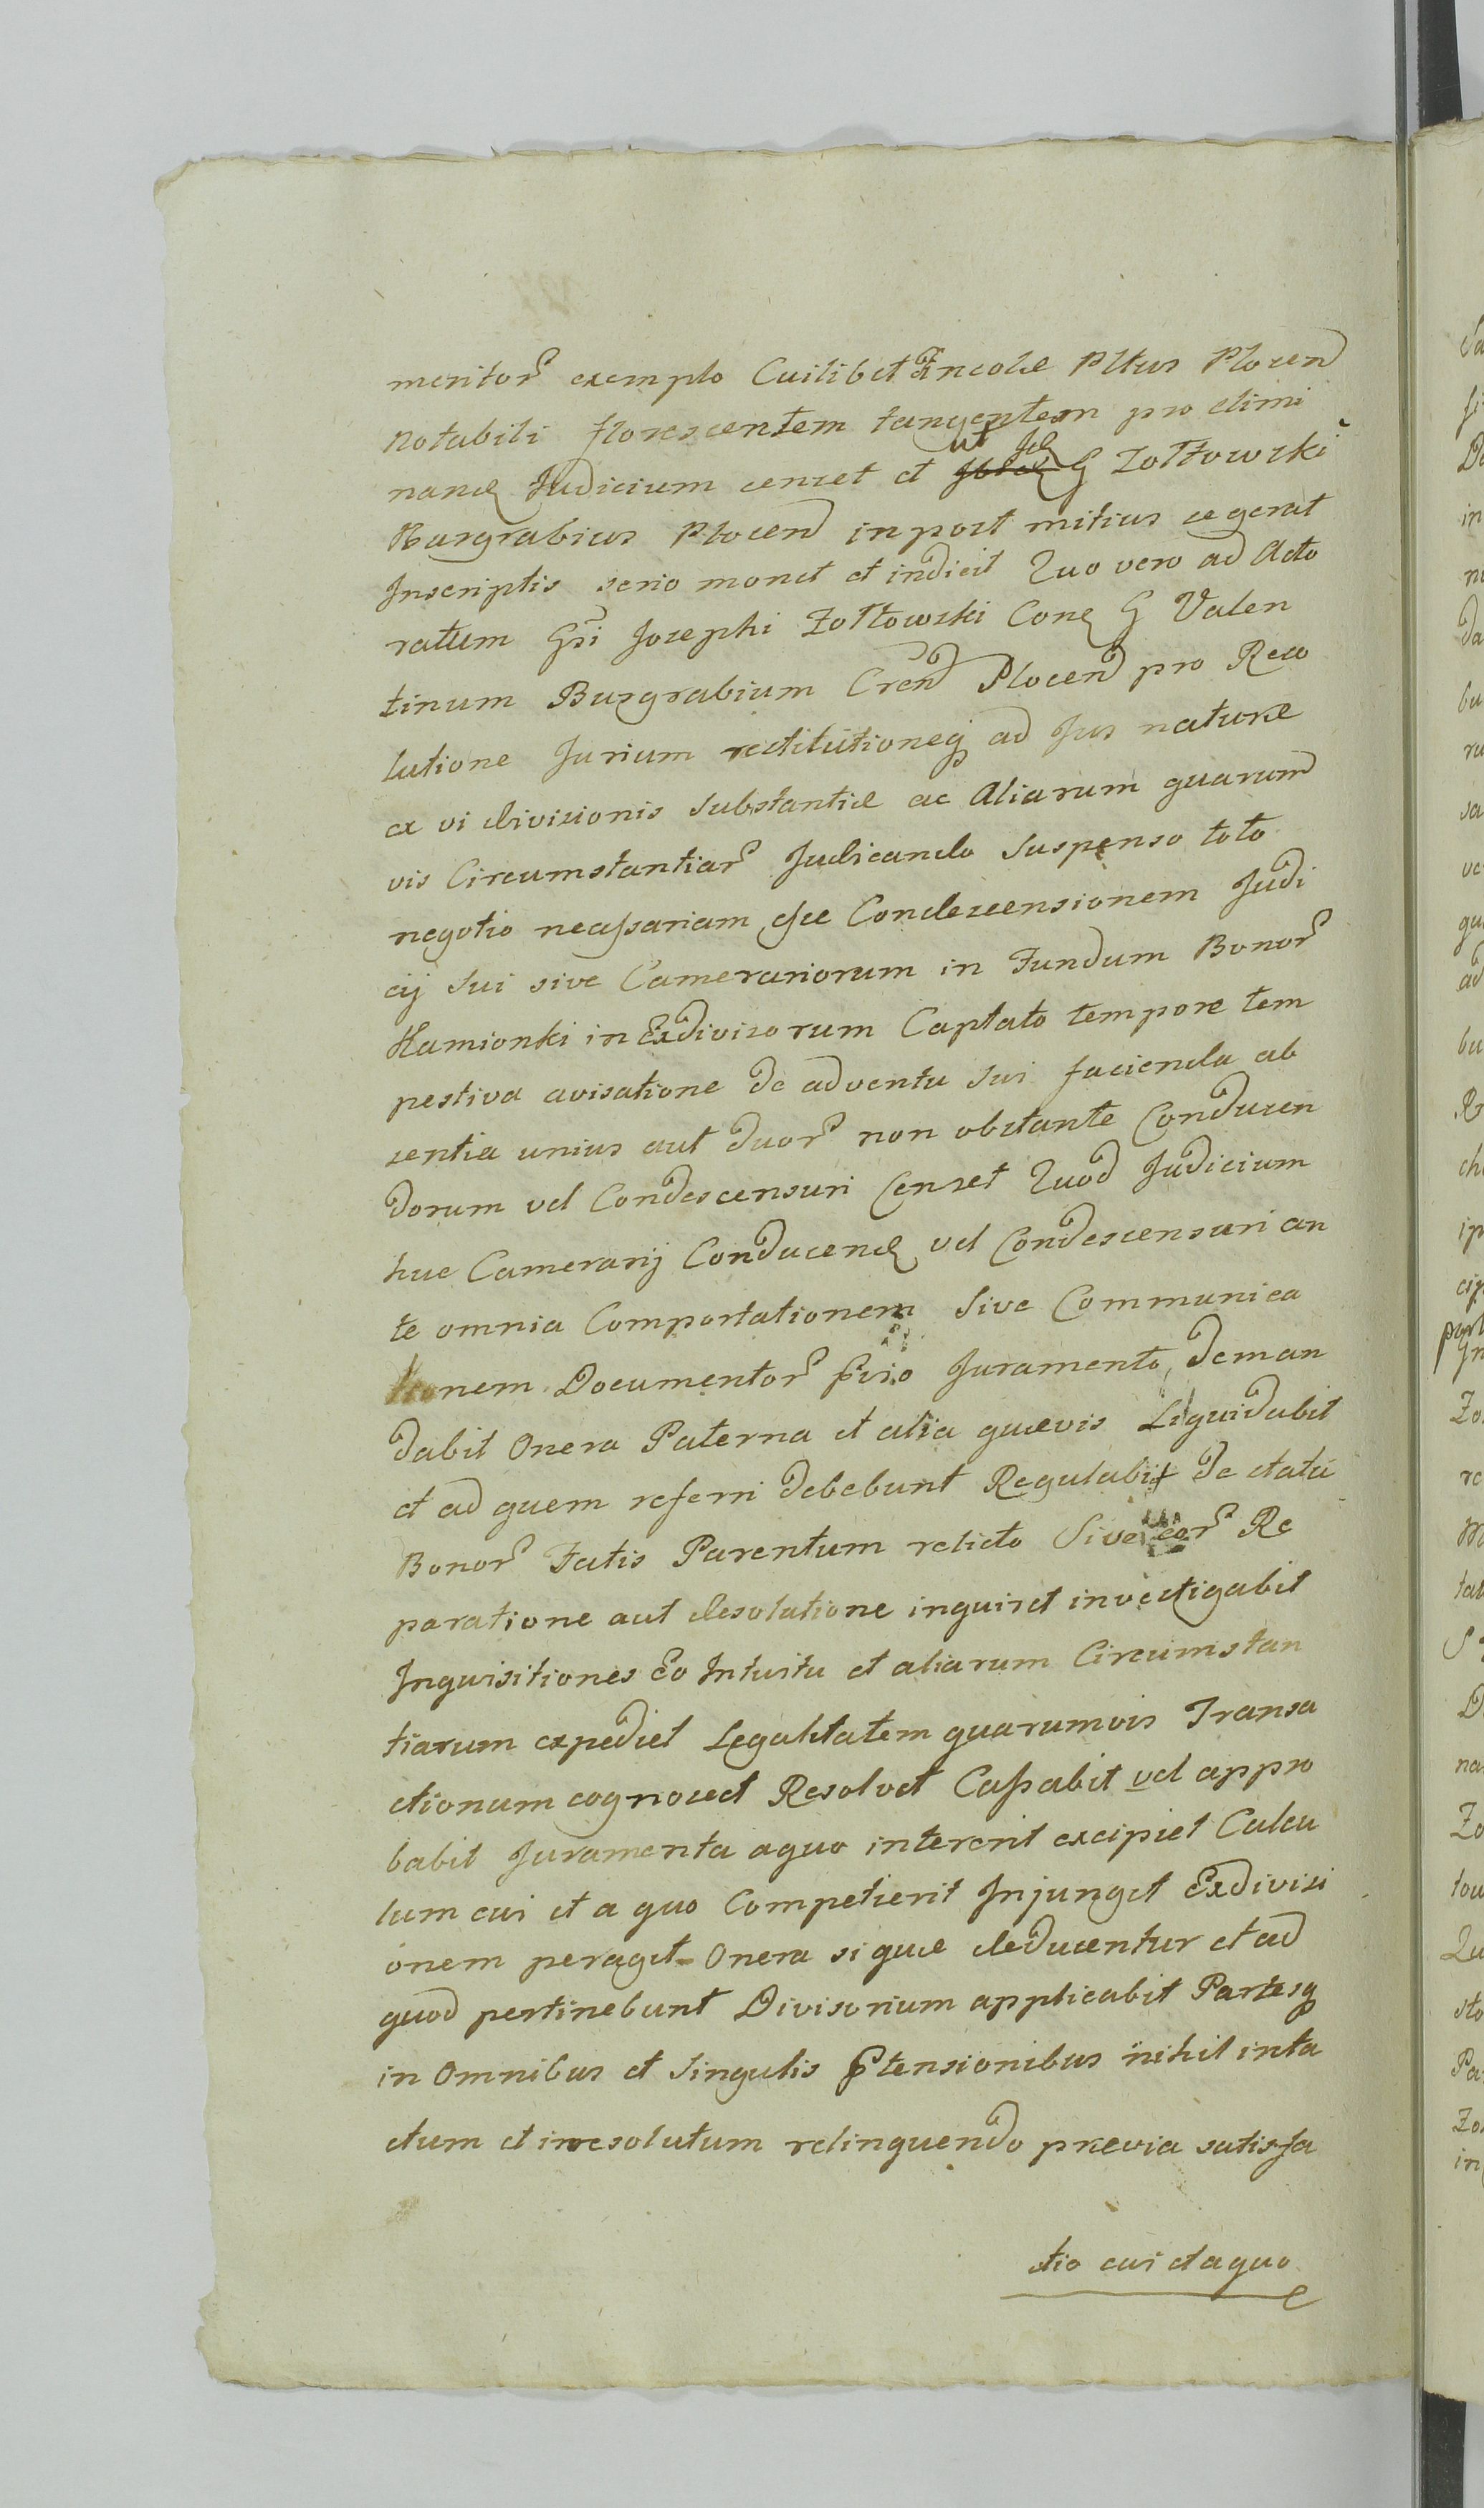 meritor exemplo Cuilibet Incolæ Pltus Plocen
notabili florescentem tangentem pro elimi
nand Judicium censet et ut G Zołtowski
Burgrabius Plocen in post mitius se gerat
Inscriptis serio monet et indicit Quo vero ad Acto
ratum Gsi Josephi Zołtowski Con G Valen
tinum Burgrabium Cren Plocen pro Reso
lutione Jurium restitutioneq ad Jus naturæ
ex vi divisionis substantiæ ac Aliarum quarum
vis Circumstantiar Judicando Suspenso toto
negotio necessariam esse Condescensionem Judi
cij sui sive Camerariorum in Fundum Bonor
Kamionki in Exdivisorum Captato tempore tem
pestiva avisatione de adventu sui facienda ab
sentia unius aut duor non obstante Conducen
dorum vel Condescensuri Censet Quod Judicium
huc Camerarij Conducend vel Condescensuri an
te omnia Comportationem Sive Communica
tionem Documentor prvio Juramento deman
dabit Onera Paterna et alia quævis Liquidabit
et ad quem referri debebunt Regulabit de statu
Bonor Fatis Parentum relicto Sive eor Re
paratione aut desolatione inquiret investigabit
Inquisitiones Eo Intuitu et aliarum Circumstan
tiarum expediet Legalitatem quarumvis Transa
ctionum cognoscet Resolvet Cassabit vel appro
babit Juramenta a quo intererit excipiet Calcu
lum cui et a quo Competierit Injunget Exdivisi
onem peraget Onera si quæ deducentur et ad
quod pertinebunt Divisorium applicabit Partesq
in Omnibus et Singulis Ptensionibus nihil inta
ctum et irresolutum relinquendo prævia satisfa
ctio cui et a quo